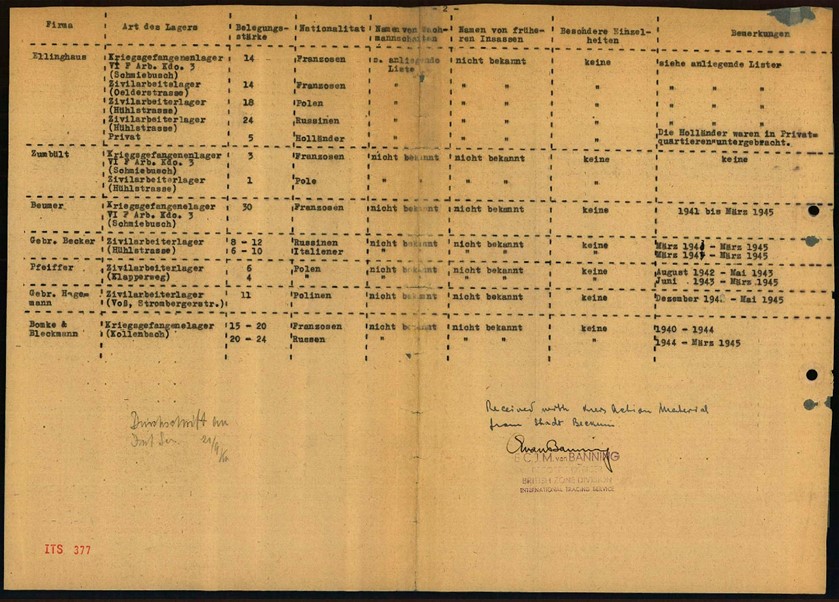 - 2 -
Firma Art des Lagers Belegungs- Nationalität Namen von Wach- Namen von frühe- Besondere Einzel- Bemerkungen
stärke mannschaften ren Insassen heiten
Ellinghaus Kriegsgefangenenlager 14 Franzosen s. anliegende nicht bekannt keine siehe anliegende Lister
VI F Arb. Kdo. 3 Liste
(Schmiebusch)
Zivilarbeitelager 14 Franzosen " " " " " " "
(Oelderstrasse)
Zivilarbeiterlager 18 Polen " " " " " " "
(Hühlstrasse)
Zivilarbeiterlager 24 Russinen " " " " " " "
(Hühlstrasse)
Privat 5 Holländer " " " " Die Holländer waren in Privat=
quartieren untergebracht.
Zumbült Kriegsgefangenenlager 3 Franzosen nicht bekannt nicht bekannt keine keine
VI F Arb. Kdo. 3
(Schmiebusch)
Zivilarbeiterlager 1 Pole " " " " "
(Hühlstrasse)
Beumer Kriegsgefangenelager 30 Franzosen nicht bekannt nicht bekannt keine 1941 bis März 1945
VI F Arb. Kdo. 3
(Schmiebusch)
Gebr. Becker Zivilarbeiterlager 8 - 12 Russinen nicht bekannt nicht bekannt keine März - März 1945
(Hühlstrasse) 6 - 10 Italiener " " " " " März - März 1945
Pfeiffer Zivilarbeiterlager 6 Polen nicht bekannt nicht bekannt keine August 1942 - Mai 1943
(Klapperweg) 4 " " " " " Juni 1943 - März 1945
Gebr. Hagemann Zivilarbeiterlager 11 Polinen nicht bekannt nicht bekannt keine Dezember - Mai 1945
(Voß, Strombergerstr.)
Bomke & Kriegsgefangenelager 15 - 20 Franzosen nicht bekannt nicht bekannt keine 1940 - 1944
Bleckmann (Kollenbach) 20 - 24 Russen " " " " 1944 - März 1945
Durchschrift an
Received with Kreis Action Material
from Stadt Beckum
C.J.M. van BANNING
BRITISH ZONE DIVISION
INTERNATIONAL TRACING SERVICE
ITS 377